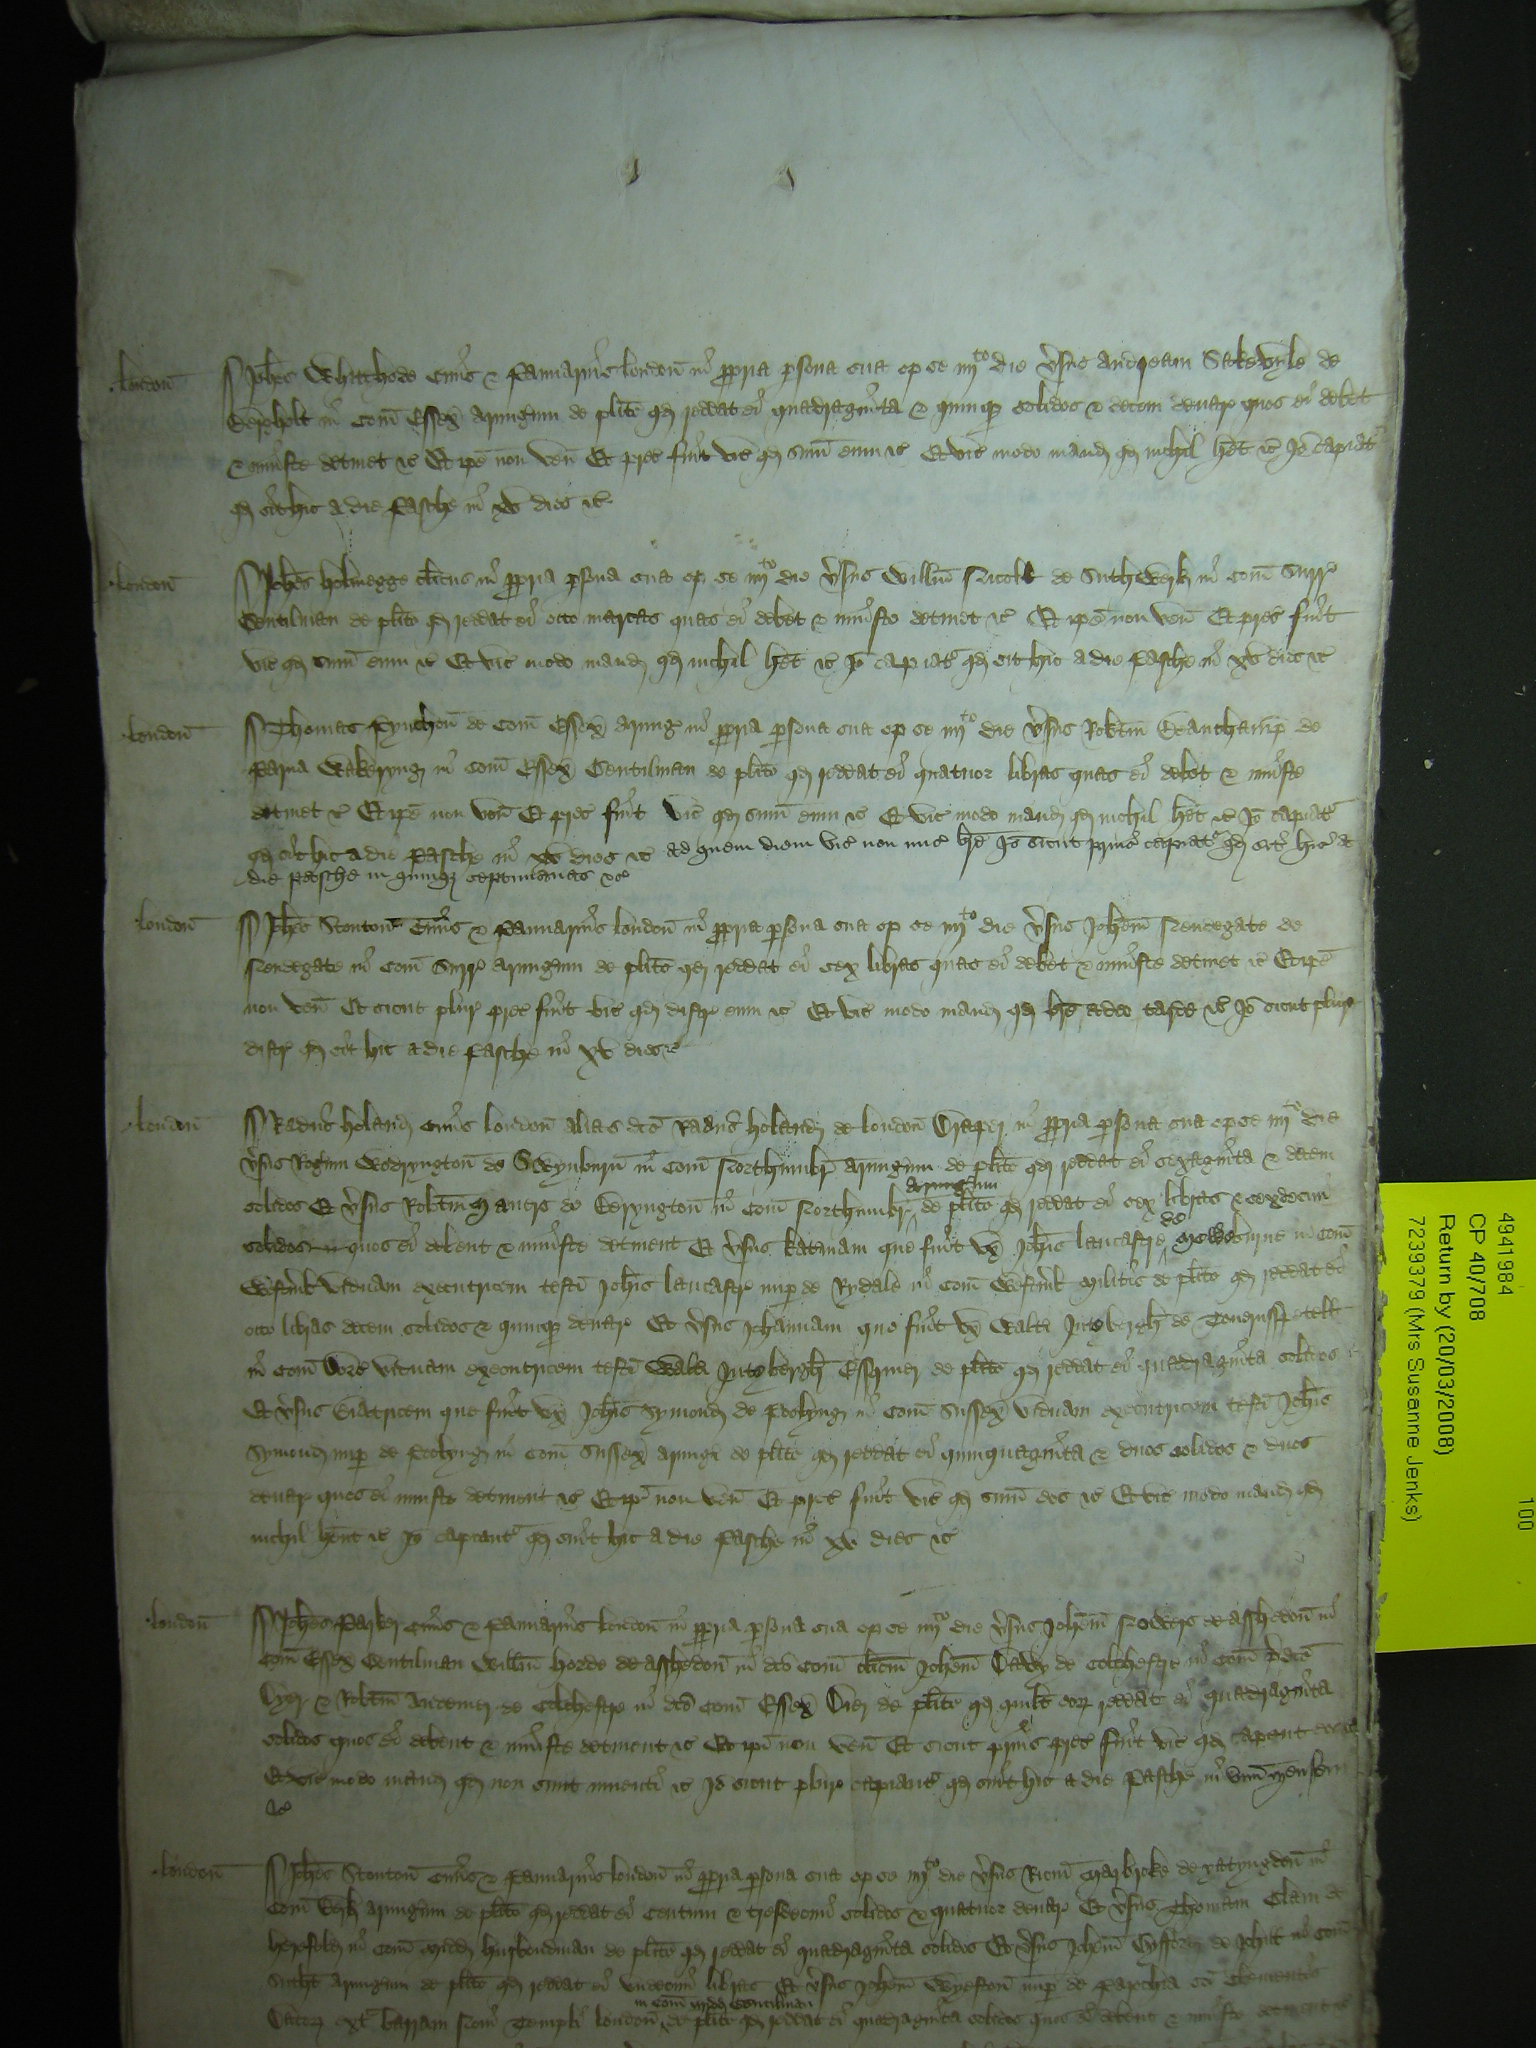 london̄ Joh̄es Whitehede Ciuis & Pannarius london̄ in p̱pria p̱sona sua op se iiijto die v̉sus Andream Stokedyle de
Berghholt in Com̄ Essex̄ Armig̉um de pl̄ito qđ reddat ei quadraginta & quinqȝ solidos & decem denar̉ quos ei debet
& iniuste detinet &c̄ Et ip̄e non ven̄ Et prec̄ fuit vic̄ qđ sum̄ eum &c̄ Et vic̄ modo mand̄ qđ nichil h̄et &c̄ Iō capiat̉
qđ sit hic a die Pasche in xv dies &c̄
london̄ Joh̄es clericus in p̱pria p̱sona sua op se iiijto die v̉sus Will̄m Nicoll de Suthwerk in Com̄ Surr̉
Gentilman de pl̄ito qđ reddat ei octo marcas quas ei debet & iniuste detinet &c̄ Et ip̄e non ven̄ Et prec̄ fuit
vic̄ qđ sum̄ eum &c̄ Et vic̄ modo mand̄ qđ nichil h̄et &c̄ Iō capiat̉ qđ sit hic a die Pasche in xv dies &c̄
london̄ Thomas Pynchon̄ de Com̄ Essex̄ Armig̉ in p̱pria p̱sona sua op se iiijto die v̉sus Rob̄tm Beauchamp̄ de
Parua Wakerynḡ in Com̄ Essex̄ Gentilman de pl̄ito qđ reddat ei quatuor libras quas ei debet & iniuste
detinet &c̄ Et ip̄e non ven̄ Et prec̄ fuit vic̄ qđ sum̄ eum &c̄ Et vic̄ modo mand̄ qđ nichil h̄et &c̄ Iō capiat̉
qđ sit hic a die Pasche in xv dies &c̄ ad quem diem vic̄ non mis̄ br̄e Iō sicut prius capiat̉ qđ sit hic a
die Pasche in quinqȝ septimanas &c̄
london̄ Joh̄es Stonton̄ Ciuis & Pannarius london̄ in p̱pria p̱sona sua op se iiijto die v̉sus Joh̄em Neudegate de
Neudegate in Com̄ Surr̉ Armig̉um de pl̄ito qđ reddat ei sex libras quas ei debet & iniuste detinet &c̄ Et ip̄e
non ven̄ Et sicut plur̉ prec̄ fuit vic̄ qđ distr̉ eum &c̄ Et vic̄ modo mand̄ qđ br̄e adeo tarde &c̄ Iō sicut plur̉
distr̉ qđ sit hic a die Pasche in xv dies &c̄
london̄ Rad̄us holand̄ Ciuis london̄ alias dc̄s Rad̄us holand̄ de london̄ Draper in p̱pria p̱sona sua op se iiijto die
v̉sus Rog̉um Wodryngton̄ de Swynburn̄ in Com̄ Northumbr̉ Armig̉um de pl̄ito qđ reddat ei sexaginta & decem
solidos Et v̉sus Rob̄tm de Edryngton̄ in Com̄ Northumbr̉ Armig̉um de pl̄ito qđ reddat ei sex libras & sexdecim
solidos quos ei debent & iniuste detinent Et v̉sus Kat̉inam que fuit vx̄ Joh̄is lancastre de in Com̄
Westm̉l viduam executricem testi Joh̄is lancastr̉ nup̱ de Rydale in Com̄ Westm̉l militis de pl̄ito qđ reddat ei
octo libras decem solidos & quinqȝ denar̉ Et v̉sus Johannam que fuit vx̄ Walt̉i de
in Com̄ viduam executricem testi Walt̉i de pl̄ito qđ reddat ei quadraginta solidos
Et v̉sus Biatricem que fuit vx̄ Joh̄is Symond̄ de in Com̄ Sussex̄ viduam executricem testi Joh̄is
Symond̄ nup̱ de in Com̄ Sussex̄ Armig̉i de pl̄ito qđ reddat ei quinquaginta & duos solidos & duos
denar̉ quos ei iniuste detinent &c̄ Et ip̄i non ven̄ Et prec̄ fuit vic̄ qđ sum̄ eos &c̄ Et vic̄ modo mand̄ qđ
nichil h̄ent &c̄ Iō capiant̉ qđ sint hic a die Pasche in xv dies &c̄
london̄ Joh̄es Parker Ciuis & Pannarius london̄ in p̱pria p̱sona sua op se iiijto die v̉sus Joh̄em de Asshedon̄ in
Com̄ Essex̄ Gentilman Will̄m Horde de Asshedon̄ in dc̄o Com̄ cl̄icum Joh̄em de Colchestre in Com̄ p̄dc̄o
Dyer & Rob̄tm de Colchestre in dc̄o Com̄ Essex̄ Dier de pl̄ito qđ quil̄t eoꝝ reddat ei quadraginta
solidos quos ei debent & iniuste detinent &c̄ Et ip̄i non ven̄ Et sicut prius prec̄ fuit vic̄ qđ caperet eos &c̄
Et vic̄ modo mand̄ qđ non sunt inuenti &c̄ Iō sicut plur̉ capiant̉ qđ sint hic a die Pasche in vnū mensem
&c̄
london̄ Joh̄es Stonton̄ Ciuis & Pannarius london̄ in p̱pria p̱sona sua op se iiijto die v̉sus Ric̄m Marbroke de Yatyngdon̄ in
Com̄ Berk̄ Armig̉um de pl̄ito qđ reddat ei Centum & tresdecim solidos & quatuor denar̉ Et v̉sus Thomam de
in Com̄ Midd̄ husbondman de pl̄ito qđ reddat ei quadraginta solidos Et v̉sus Joh̄em Gyfford̄ de in Com̄
Suth̄t Armig̉um de pl̄ito qđ reddat ei vndecim libras Et v̉sus Joh̄em nup̱ de Parochia sc̄i Clementis
Dacoꝝ ext̉ barram Noui Templi london̄ in Com̄ Midd̄ Gentilman de pl̄ito qđ reddat ei quadraginta solidos quos ei debent & iniuste detinent
4941984 100
CP 40/708
Return by (20/03/2008)
7239379 (Mrs Susanne Jenks)